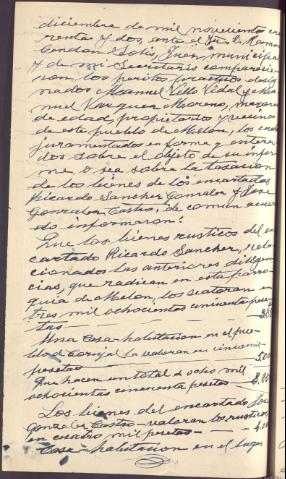 diciembre de mil novecientos cua
renta y dos, ante el Sr. D. Ramon
Cendon Solis, Juez municipal
y de mi Secretario comparecie
ron los peritos practicos desig
nados Manuel Vidal y Ma
nuel Vazquez Moreno, mayores
de edad, propietarios y vecinos
de este pueblo de Melon, los cuales
juramentados en forma y entera
dos sobre el objeto de su infor
me, o sea sobre la tasacion
de los bienes de los encartados
Ricardo Sanchez Gonzalez y Jose
Gonzalez Castro, de comun acuer
do informaron:
Que los bienes rusticos del en
cartado Ricardo Sanchez, rela
cionados las anteriores diligen
cias, que radican en esta parro
quia de Melon, los valoran en
tres mil ochocientos cincuenta pese
tas
Una Casa-habitacion en el pue
blo de la valoran en cinco mil
pesetas
Que hacen un total de ocho mil
ochocientas cincuenta pesetas
Los bienes del encartado Jose
Gonzalez Castro valoran los rusticos
en cuatro mil pesetas
Casa-habitacion en el lugar